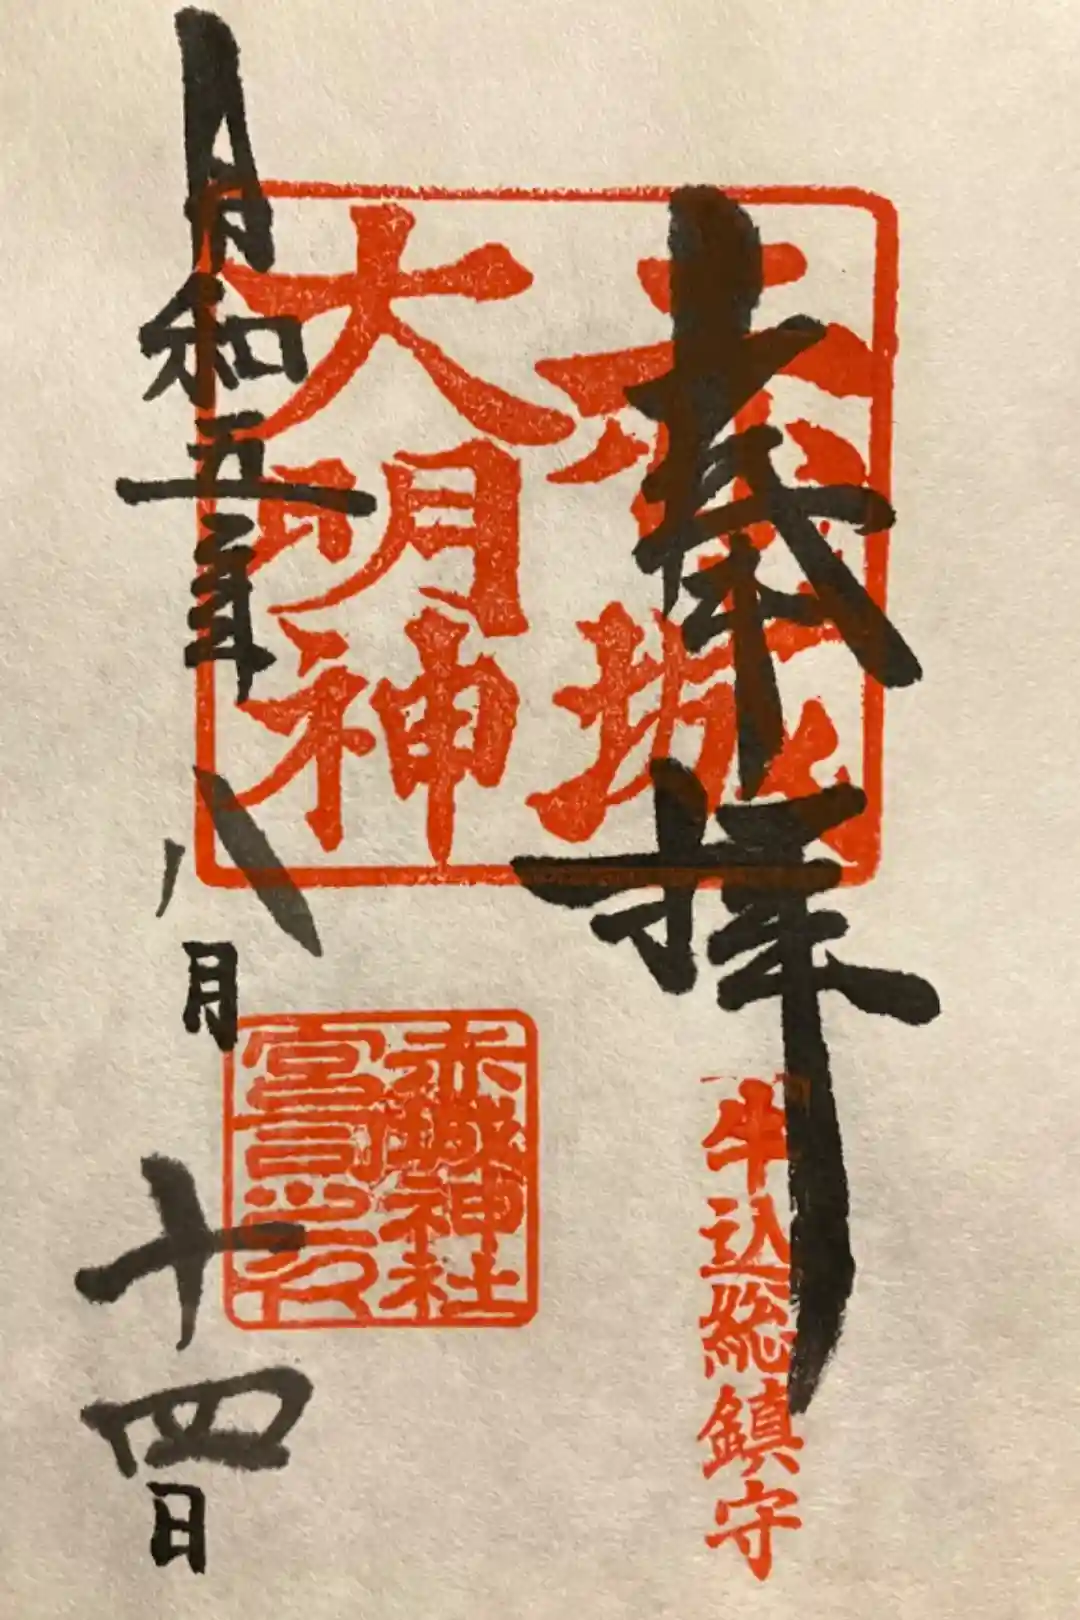 奉拝
牛込総鎮守
赤城
大明神
赤城神社
宮司之印
令和五年八月十四日